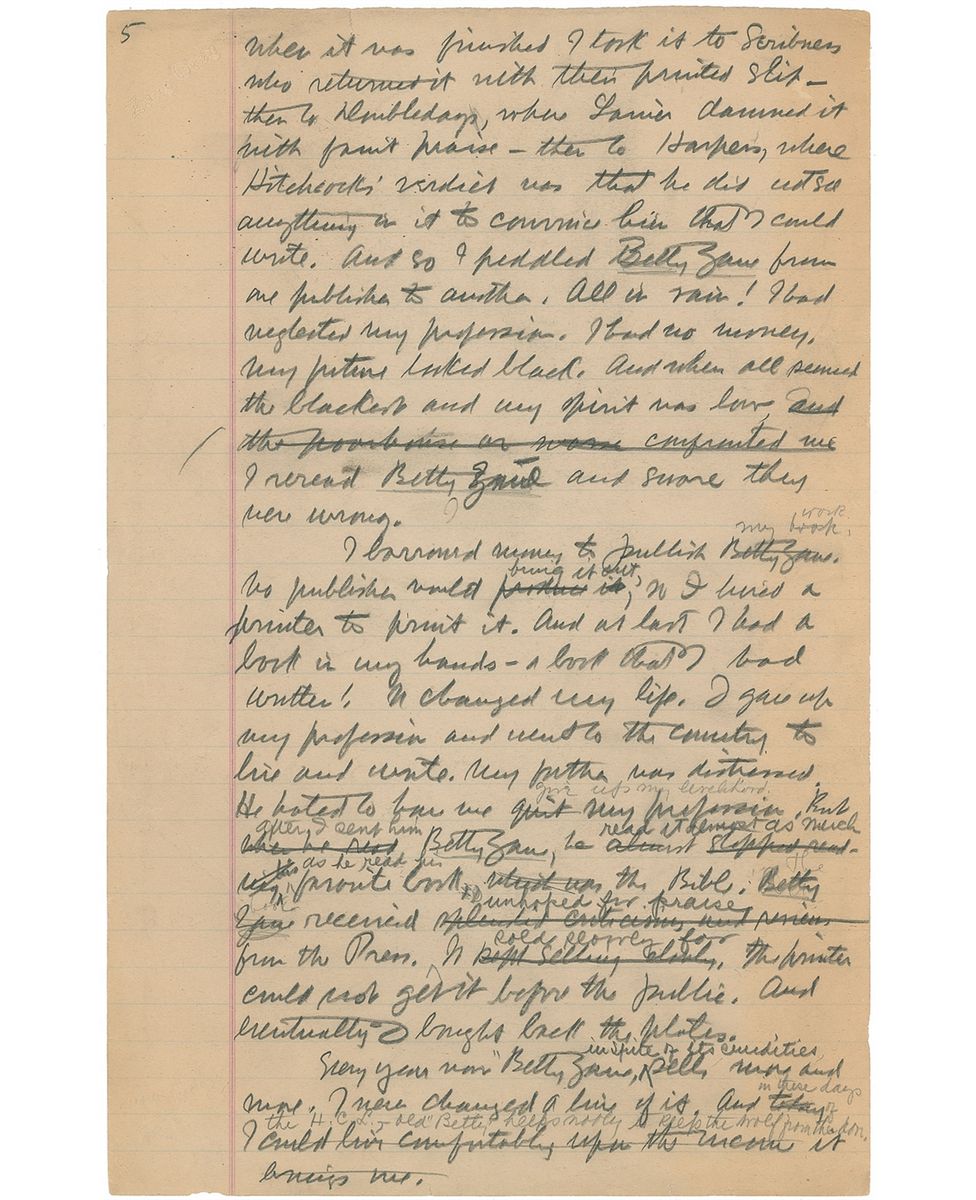 5
when it was finished I took it to Scribners
who returned it with their printed slip —
then to Doubledays, where Lanier damned it
with faint praise — then to Harpers, where
Hitchcock's verdict was that he did not see
anything in it to convince him that I could
write. And so I peddled Betty Zane from
one publisher to another. All in vain! I had
neglected my profession. I had no money.
My future looked black. And when all seemed
the blackest and my spirit was low, and
the poorhouse or worse confronted me
I reread Betty Zane and swore they
were wrong.
work
my book.
I borrowed money to publish Betty Zane.
bring it out,
No publisher would produce it, so I hired a
printer to print it. And at last I had a
book in my hands — a book that I had
written! It changed my life. I gave up
my profession and went to the country to
live and write. My father was distressed.
give up my livelihood.
He hated to have me quit my profession. But
after I sent him read it almost as much
when he read Betty Zane, he almost stopped read-
as he read his
ing favorite book, which was the Bible. Betty
unhoped for praise
Zane received splendid criticisms and reviews
sold slowly for
from the Press. It kept selling slowly. The printer
could not get it before the public. And
eventually I bought back the plates.
in spite of its crudities,
Every year now "Betty Zane, sells more and
in these days
more. I never changed a line of it. And today
the H.C.L. — old "Betty" helps nobly to keep the wolf from the door.
I could live comfortably upon the income it
brings me.